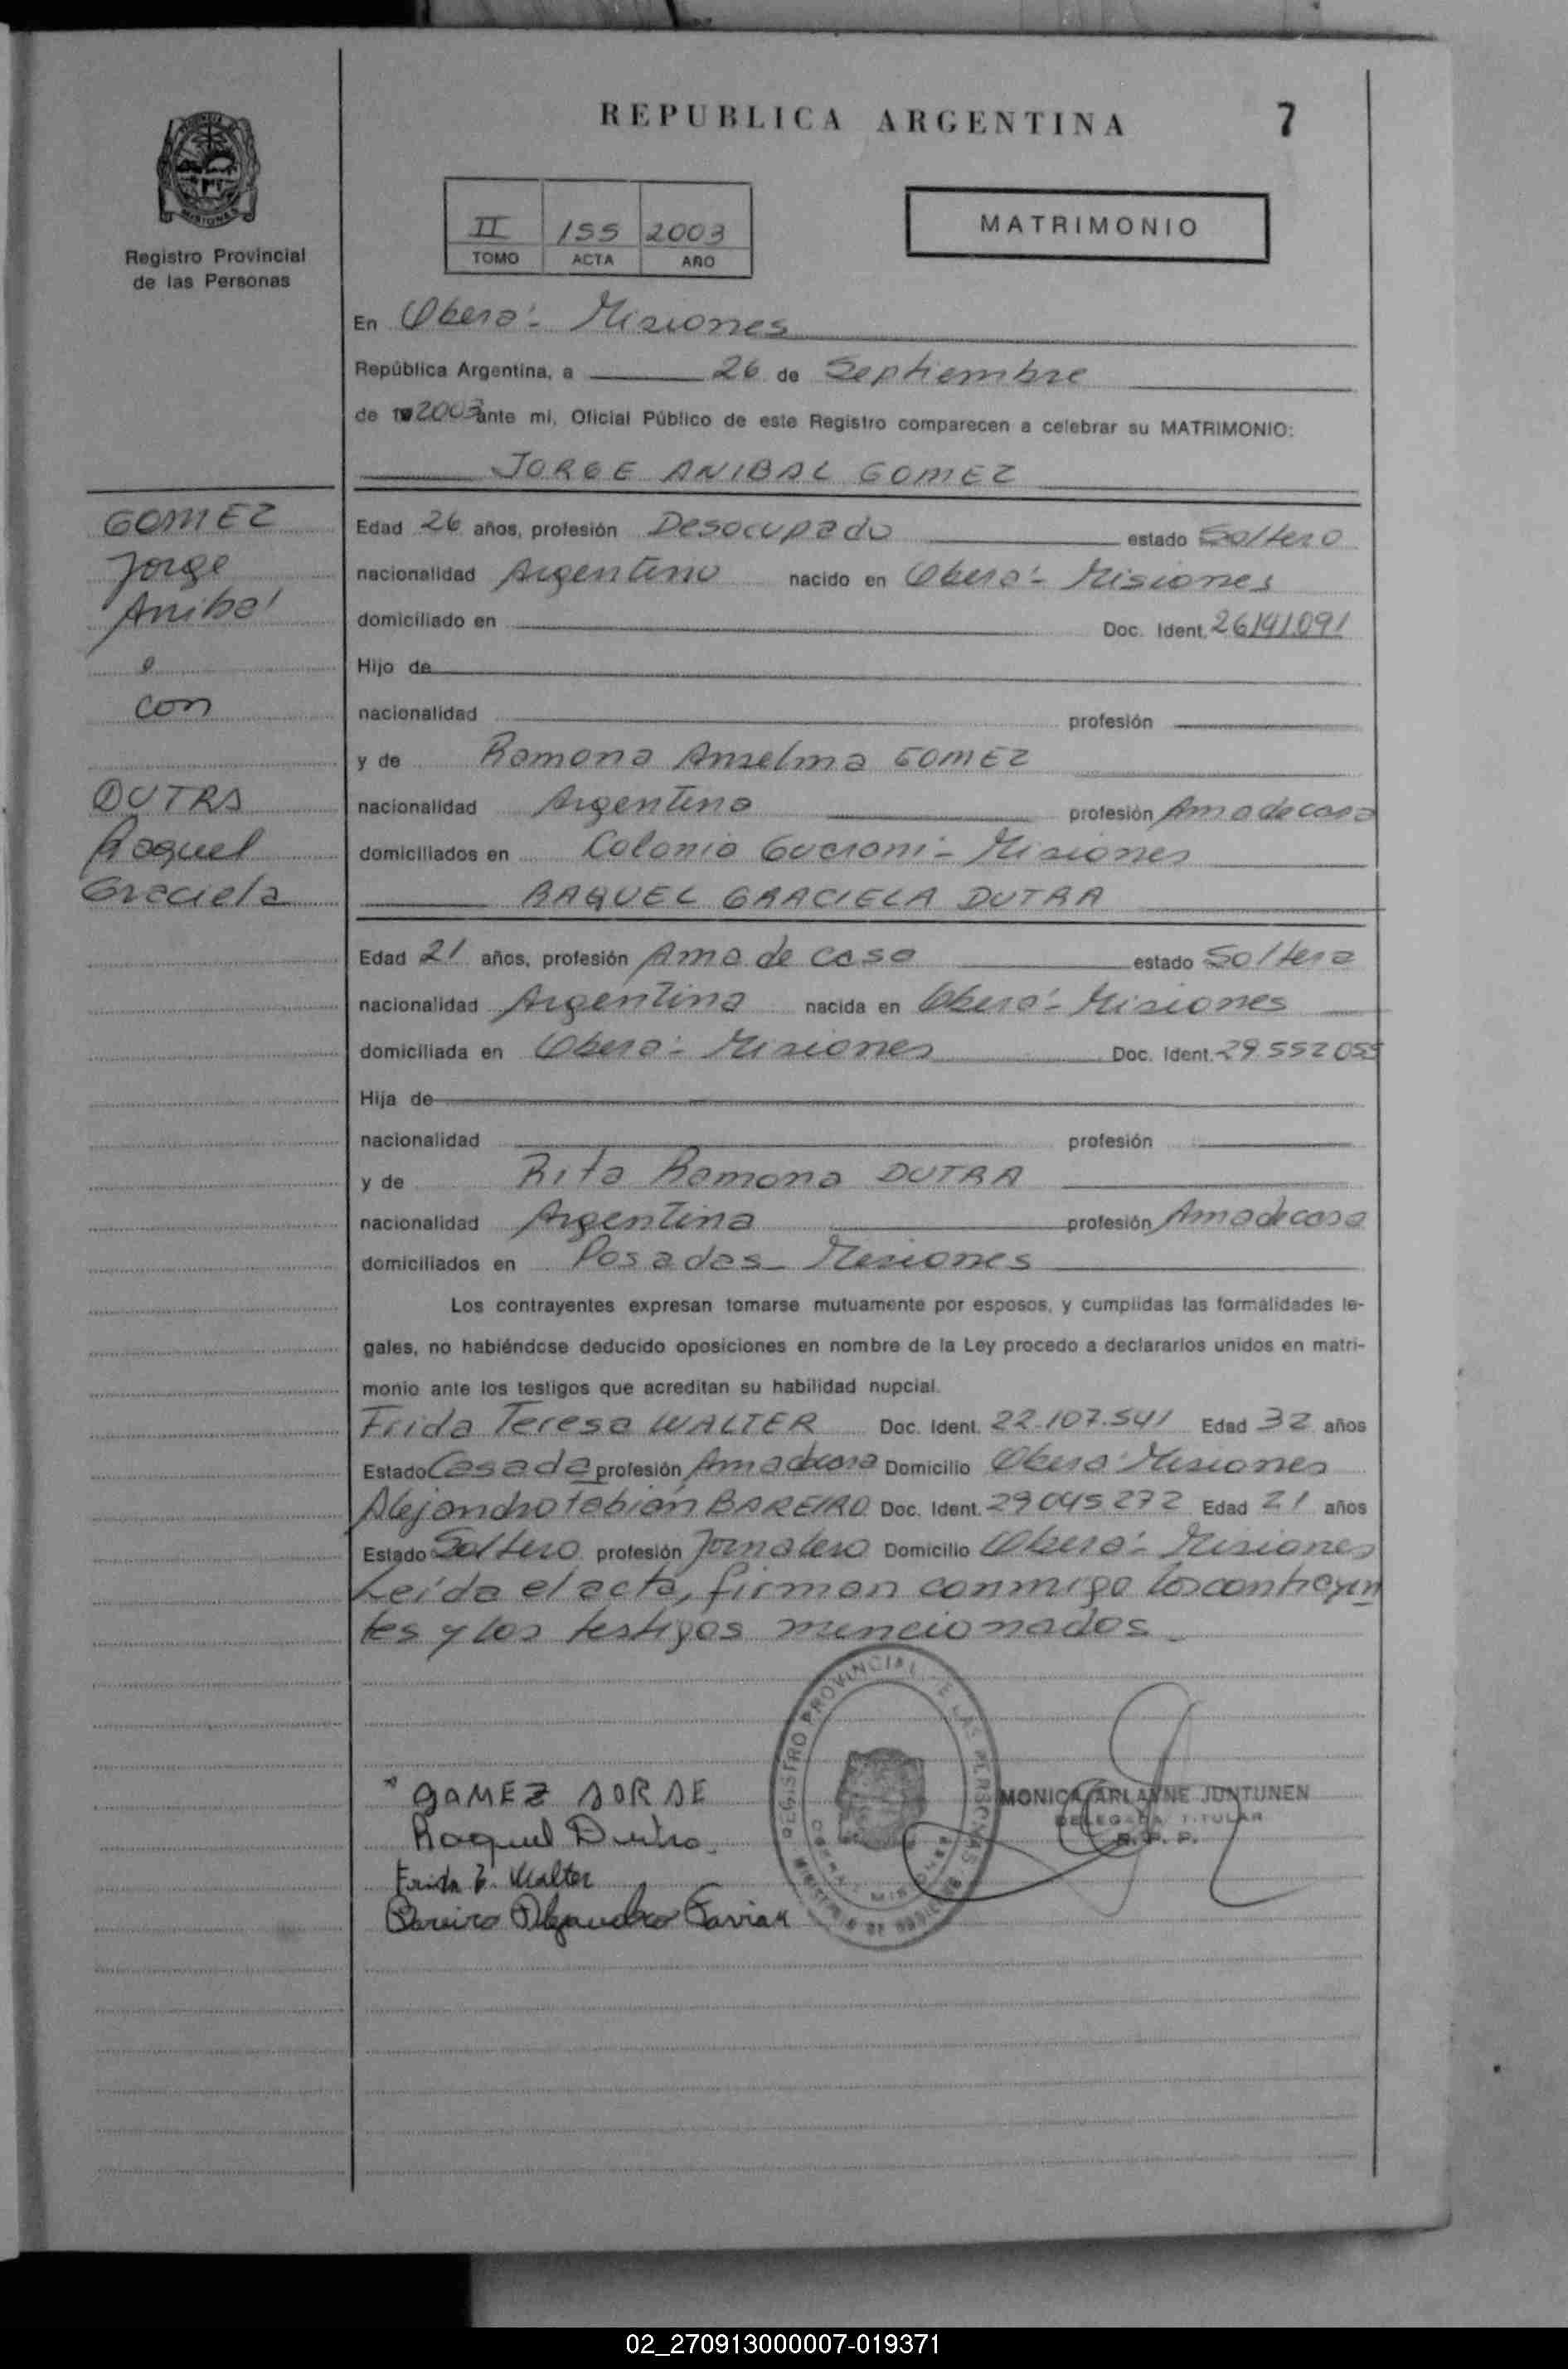 REPUBLICA ARGENTINA
7
MISIONES
Registro Provincial
de las Personas
II 155 2003
TOMO ACTA AÑO
MATRIMONIO
En Oberá - Misiones
República Argentina, a 26 de Septiembre
de 19 2003 ante mi, Oficial Público de este Registro comparecen a celebrar su MATRIMONIO:
JORGE ANIBAL GOMEZ
GOMEZ
Jorge
Anibal
con
DUTRA
Raquel
Graciela
Edad 26 años, profesión Desocupado estado Soltero
nacionalidad Argentino nacido en Oberá - Misiones
domiciliado en Doc. Ident. 26141.091
Hijo de
nacionalidad profesión
y de Ramona Anselma GOMEZ
nacionalidad Argentina profesión Ama de casa
domiciliados en Colonia - Misiones
RAQUEL GRACIELA DUTRA
Edad 21 años, profesión Ama de casa estado Soltera
nacionalidad Argentina nacida en Oberá - Misiones
domiciliada en Oberá - Misiones Doc. Ident. 29.552055
Hija de
nacionalidad profesión
y de Rita Ramona DUTRA
nacionalidad Argentina profesión Ama de casa
domiciliados en Posadas - Misiones
Los contrayentes expresan tomarse mutuamente por esposos, y cumplidas las formalidades le-
gales, no habiéndose deducido oposiciones en nombre de la Ley procedo a declararlos unidos en matri-
monio ante los testigos que acreditan su habilidad nupcial.
Frida Teresa WALTER Doc. Ident. 22.107.541 Edad 32 años
Estado Casada profesión Ama de casa Domicilio Oberá Misiones
Alejandro Fabián BAREIRO Doc. Ident. 29045272 Edad 21 años
Estado Soltero profesión Jornalero Domicilio Oberá - Misiones
Leída el acta, firman conmigo los contrayen
tes y los testigos mencionados.
REGISTRO PROVINCIAL DE LAS PERSONAS
GOMEZ JORGE
Raquel Dutra
Frida T. Walter
Bareiro Alejandro Favian
MONICA ARLAYNE JUNTUNEN
DELEGADA TITULAR
R. P. P.
02_270913000007-019371